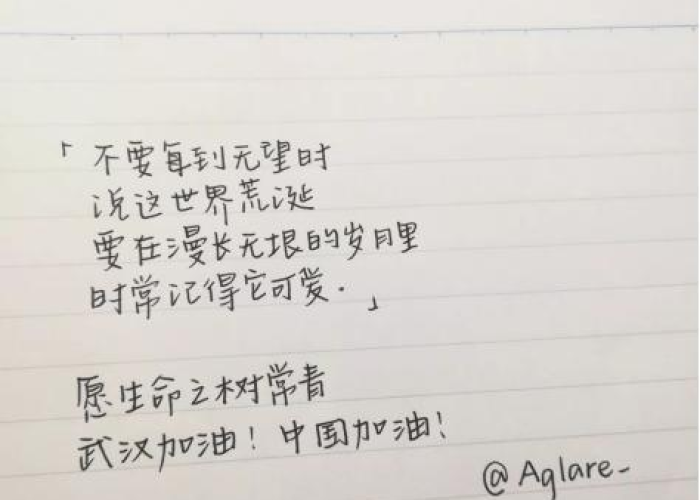 「不要每到无望时
说这世界荒诞
要在漫长无垠的岁月里
时常记得它可爱.」
愿生命之树常青
武汉加油!中国加油!
@Aglare_